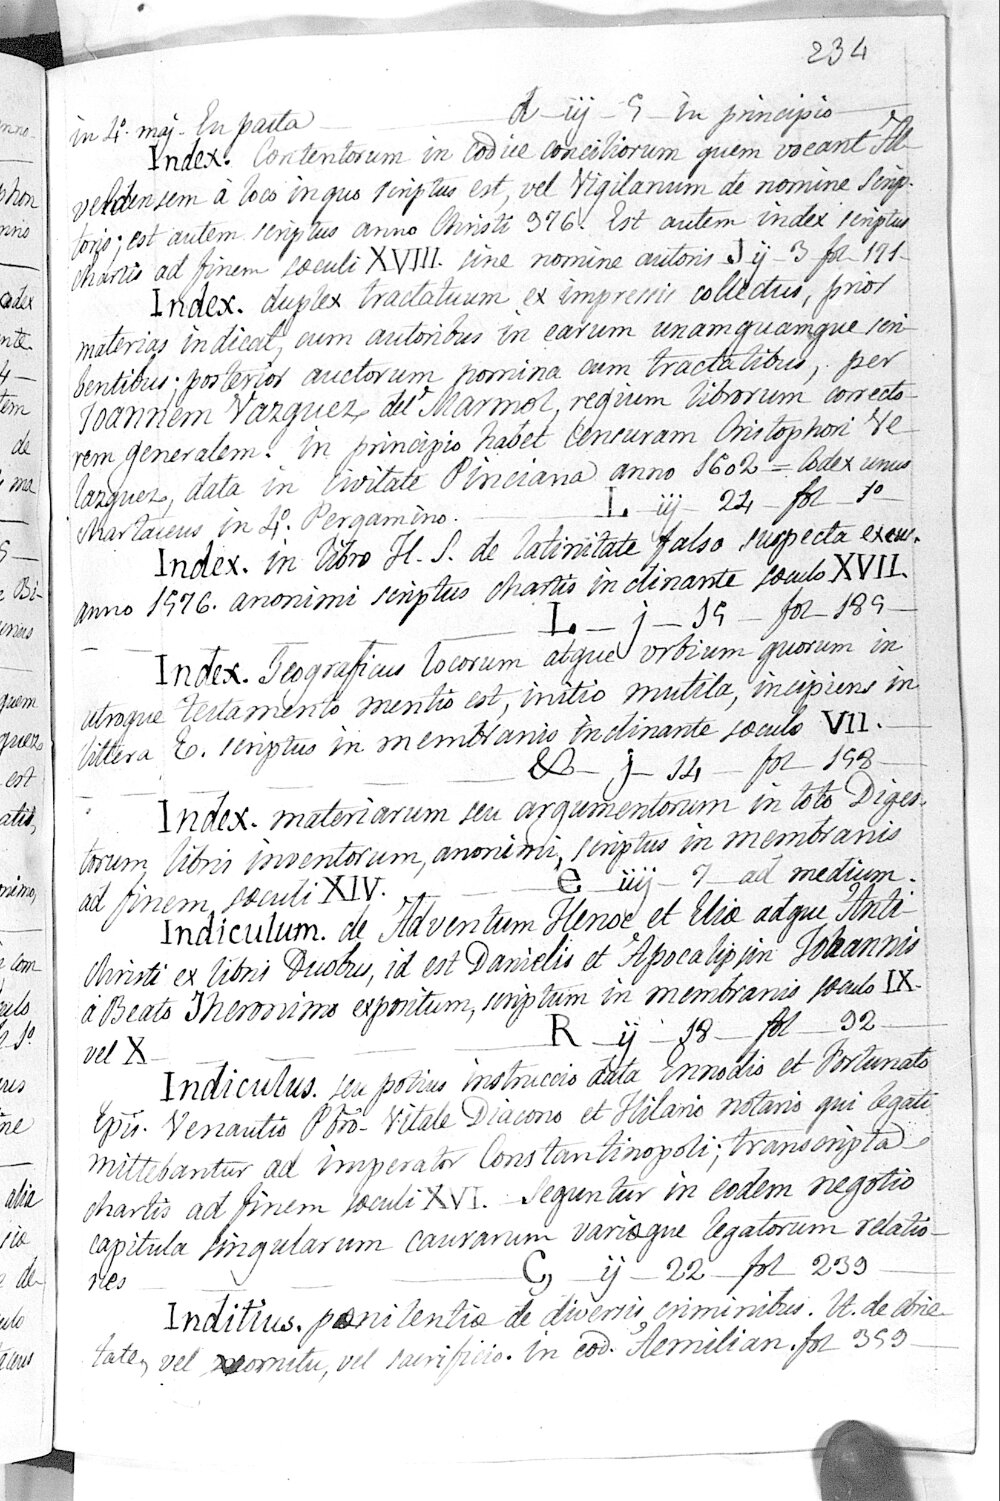 234
in 4º. maj. En pasta d - iij - 5 - in principio
Index. Contentorum in codice conciliorum quem vocant Al-
veldensem à loco in quo scriptus est, vel Vigilanum de nomine Scrip-
toris; est autem scriptus anno Christi 976. Est autem index scriptus
chartis ad finem sæculi XVIII. sine nomine autoris J ij - 3 fol 191
Index. duplex tractatuum ex impressis collectus, prior
materias indicat, cum autoribus in earum unamquamque scri-
bentibus; posterior auctorum nomina cum tractatibus, per
Joannem Vazquez del Marmol, regium librorum correcto-
rem generalem. in principio habet Censuram Cristophori Ve-
lazquez, data in Civitate Pinciana anno 1602 = Codex unus
Chartaceus in 4º. Pergamino. L - iij - 24 - fol - 1º
Index. in libro H. S. de latinitate falso suspecta excus.
anno 1576. anonimi scriptus chartis inclinante sæculo XVII.
L - j - 15 - fol - 185
Index. Geograficus locorum atque urbium quorum in
utroque testamento mentio est, initio mutila, incipiens in
littera E. scriptus in membranis inclinante sæculo VII.
& - j - 14 - fol - 158
Index. materiarum seu argumentorum in toto Diges-
torum libris inventorum, anonimi, scriptus in membranis
ad finem sæculi XIV. e iiij - 7 ad medium.
Indiculum. de Adventum Henoc et Eliæ adque Anti-
christi ex libris Duobus, id est Danielis et Apocalipsin Johannis
à Beato Iheronimo expositum, scriptum in membranis sæculo IX.
vel X R - ij - 18 - fol - 92
Indiculus. seu potius instruccio data Ennodio et Fortunato
Epīs. Venautio Pbrō. Vitale Diacono et Hilario notario qui legati
mittebantur ad imperator Constantinopoli; transcripta
chartis ad finem sæculi XVI. Seguntur in eodem negotio
capitula singularum causarum variæque legatorum relatio-
nes C, ij - 22 - fol - 239
Inditius. pænitentiæ de diversis criminibus. Ut. de ebrie
tate, vel vomitu, vel sacrificio. in cod. Aemilian. fol 353